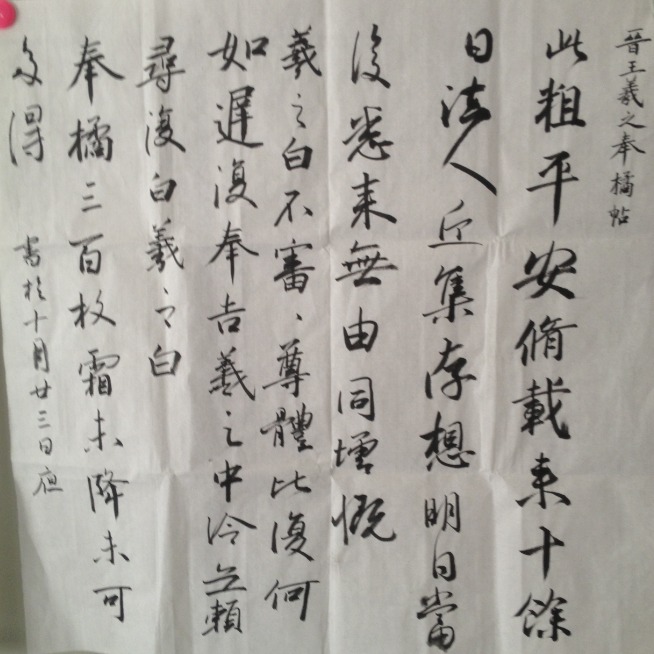 晉王羲之奉橘帖
此粗平安脩載来十餘
日諸人近集存想明日當
復悉来無由同增慨
羲之白不審、尊體比復何
如遲復奉告羲之中冷無賴
尋復白羲之白
奉橘三百枚霜未降未可
多得
書於十月廿三日夜